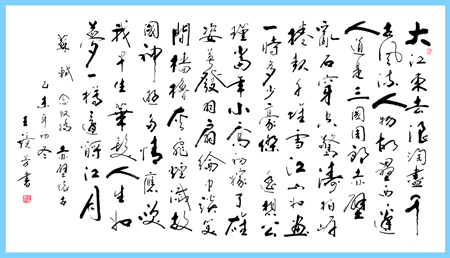 大江東去浪淘盡千
古風流人物故壘西邊
人道是三國周郎赤壁
亂石穿空驚濤拍岸
捲起千堆雪江山如畫
一時多少豪傑遥想公
瑾當年小喬初嫁了雄
姿英發羽扇綸巾談笑
間檣櫓灰飛煙滅故
國神遊多情應笑
我早生華髮人生如
夢一樽還酹江月
蘇軾 念奴嬌 赤壁懷古
乙未年初冬
王 芳書